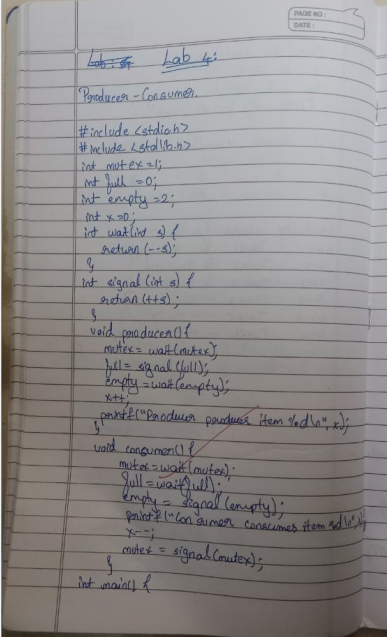 PAGE NO:
DATE:
Lab 4:
Producer - Consumer.
#include <stdio.h>
#include <stdlib.h>
int mutex=1;
int full =0;
int empty =2;
int x=0;
int wait(int s) {
return (--s);
}
int signal (int s) {
return (++s) ;
}
void producer() {
mutex = wait(mutex);
full = signal (full);
empty = wait(empty);
x++;
printf("Producer produces item %d\n", x);
}
void consumer() {
mutex = wait(mutex);
full = wait(full);
empty = signal (empty);
printf("Consumer consumes item %d\n",
x--;
mutex = signal(mutex);
}
int main() {